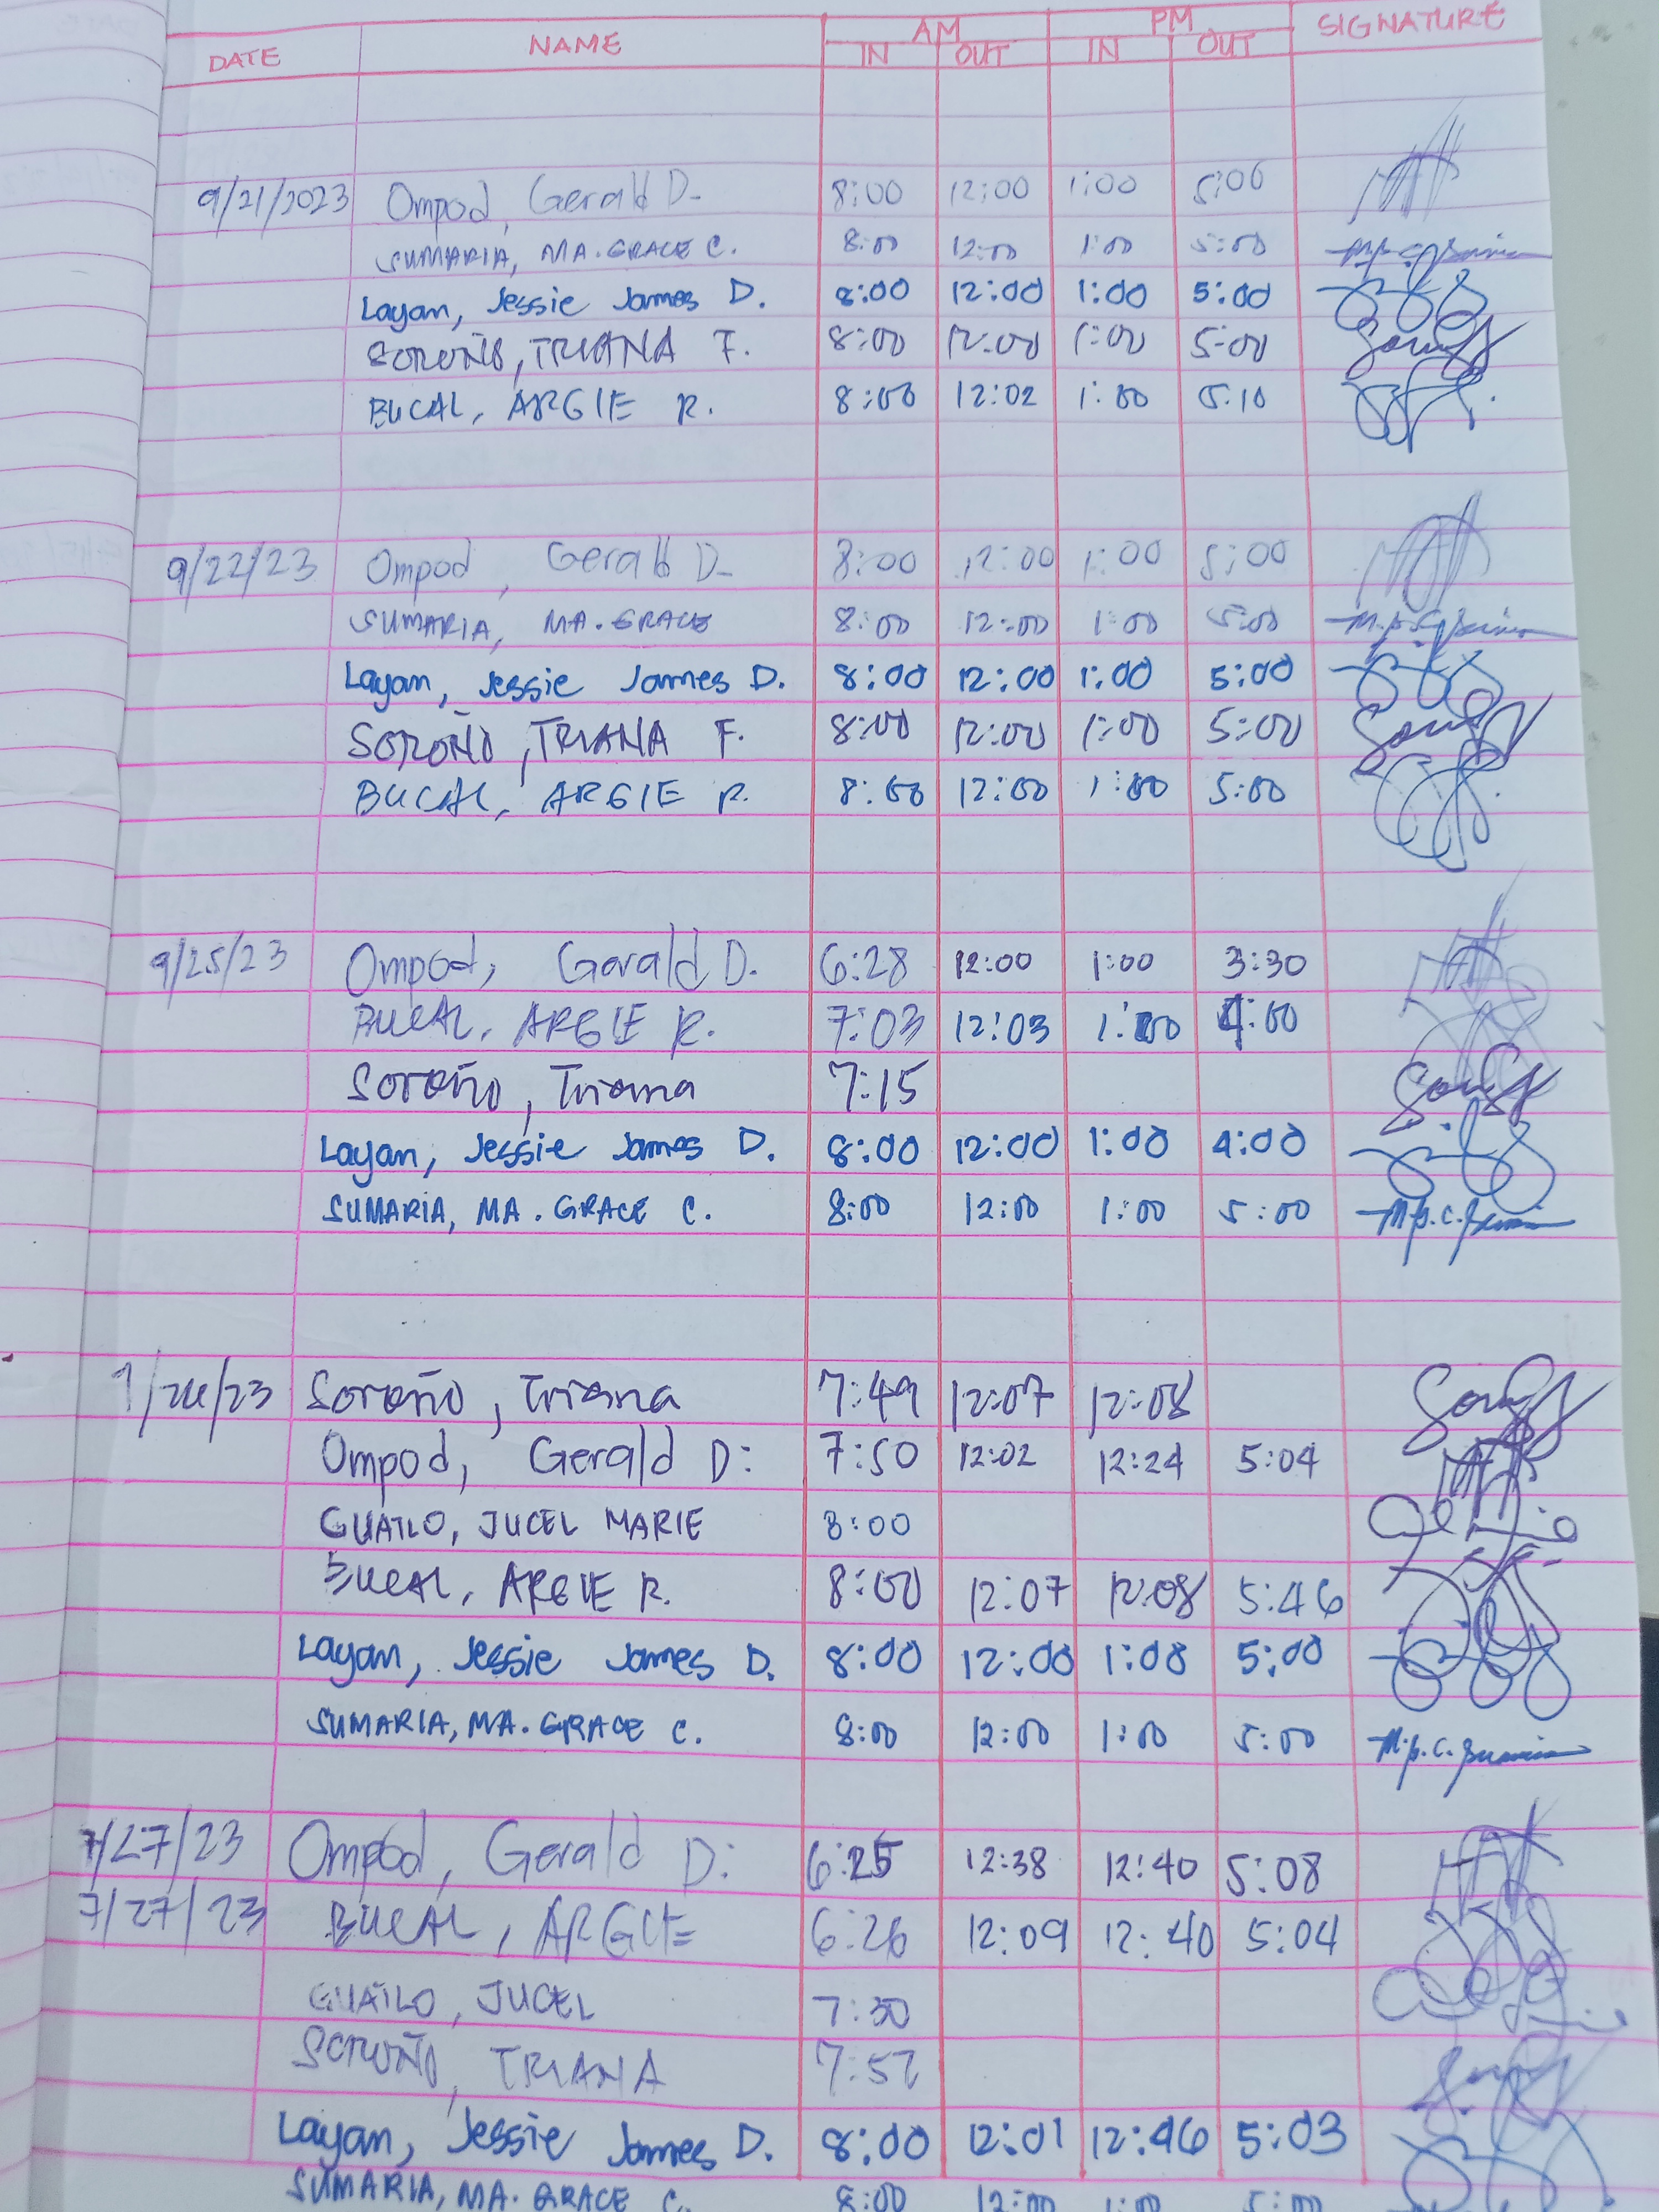 AM PM
DATE NAME IN OUT IN OUT SIGNATURE
9/21/2023 Ompod, Gerald D. 8:00 12:00 1:00 5:00
SUMARIA, MA. GRACE C. 8:00 12:00 1:00 5:00
Layan, Jessie James D. 8:00 12:00 1:00 5:00
SOROÑO, TRIANA F. 8:00 12:00 1:00 5:00
BUCAL, ARGIE R. 8:00 12:02 1:00 5:10
9/22/23 Ompod, Gerald D. 8:00 12:00 1:00 5:00
SUMARIA, MA. GRACE 8:00 12:00 1:00 5:00
Layan, Jessie James D. 8:00 12:00 1:00 5:00
SOROÑO, TRIANA F. 8:00 12:00 1:00 5:00
BUCAL, ARGIE R. 8:00 12:00 1:00 5:00
9/25/23 Ompod, Gerald D. 6:28 12:00 1:00 3:30
BUCAL, ARGIE R. 7:03 12:03 1:00 4:00
Soroño, Triana 7:15
Layan, Jessie James D. 8:00 12:00 1:00 4:00
SUMARIA, MA. GRACE C. 8:00 12:00 1:00 5:00
Soroño, Triana 7:49 12:07 12:08
Ompod, Gerald D. 7:50 12:02 12:24 5:04
GUATLO, JUCEL MARIE 8:00
BUCAL, ARGIE R. 8:00 12:07 12:08 5:46
Layan, Jessie James D. 8:00 12:00 1:08 5:00
SUMARIA, MA. GRACE C. 8:00 12:00 1:00 5:00
7/27/23 Ompod, Gerald D. 6:25 12:38 12:40 5:08
7/27/23 BUCAL, ARGIE 6:26 12:09 12:40 5:04
GUATLO, JUCEL 7:30
SOROÑO, TRIANA 7:57
Layan, Jessie James D. 8:00 12:01 12:46 5:03
SUMARIA, MA. GRACE C. 8:00 12:00 1:00 5:00